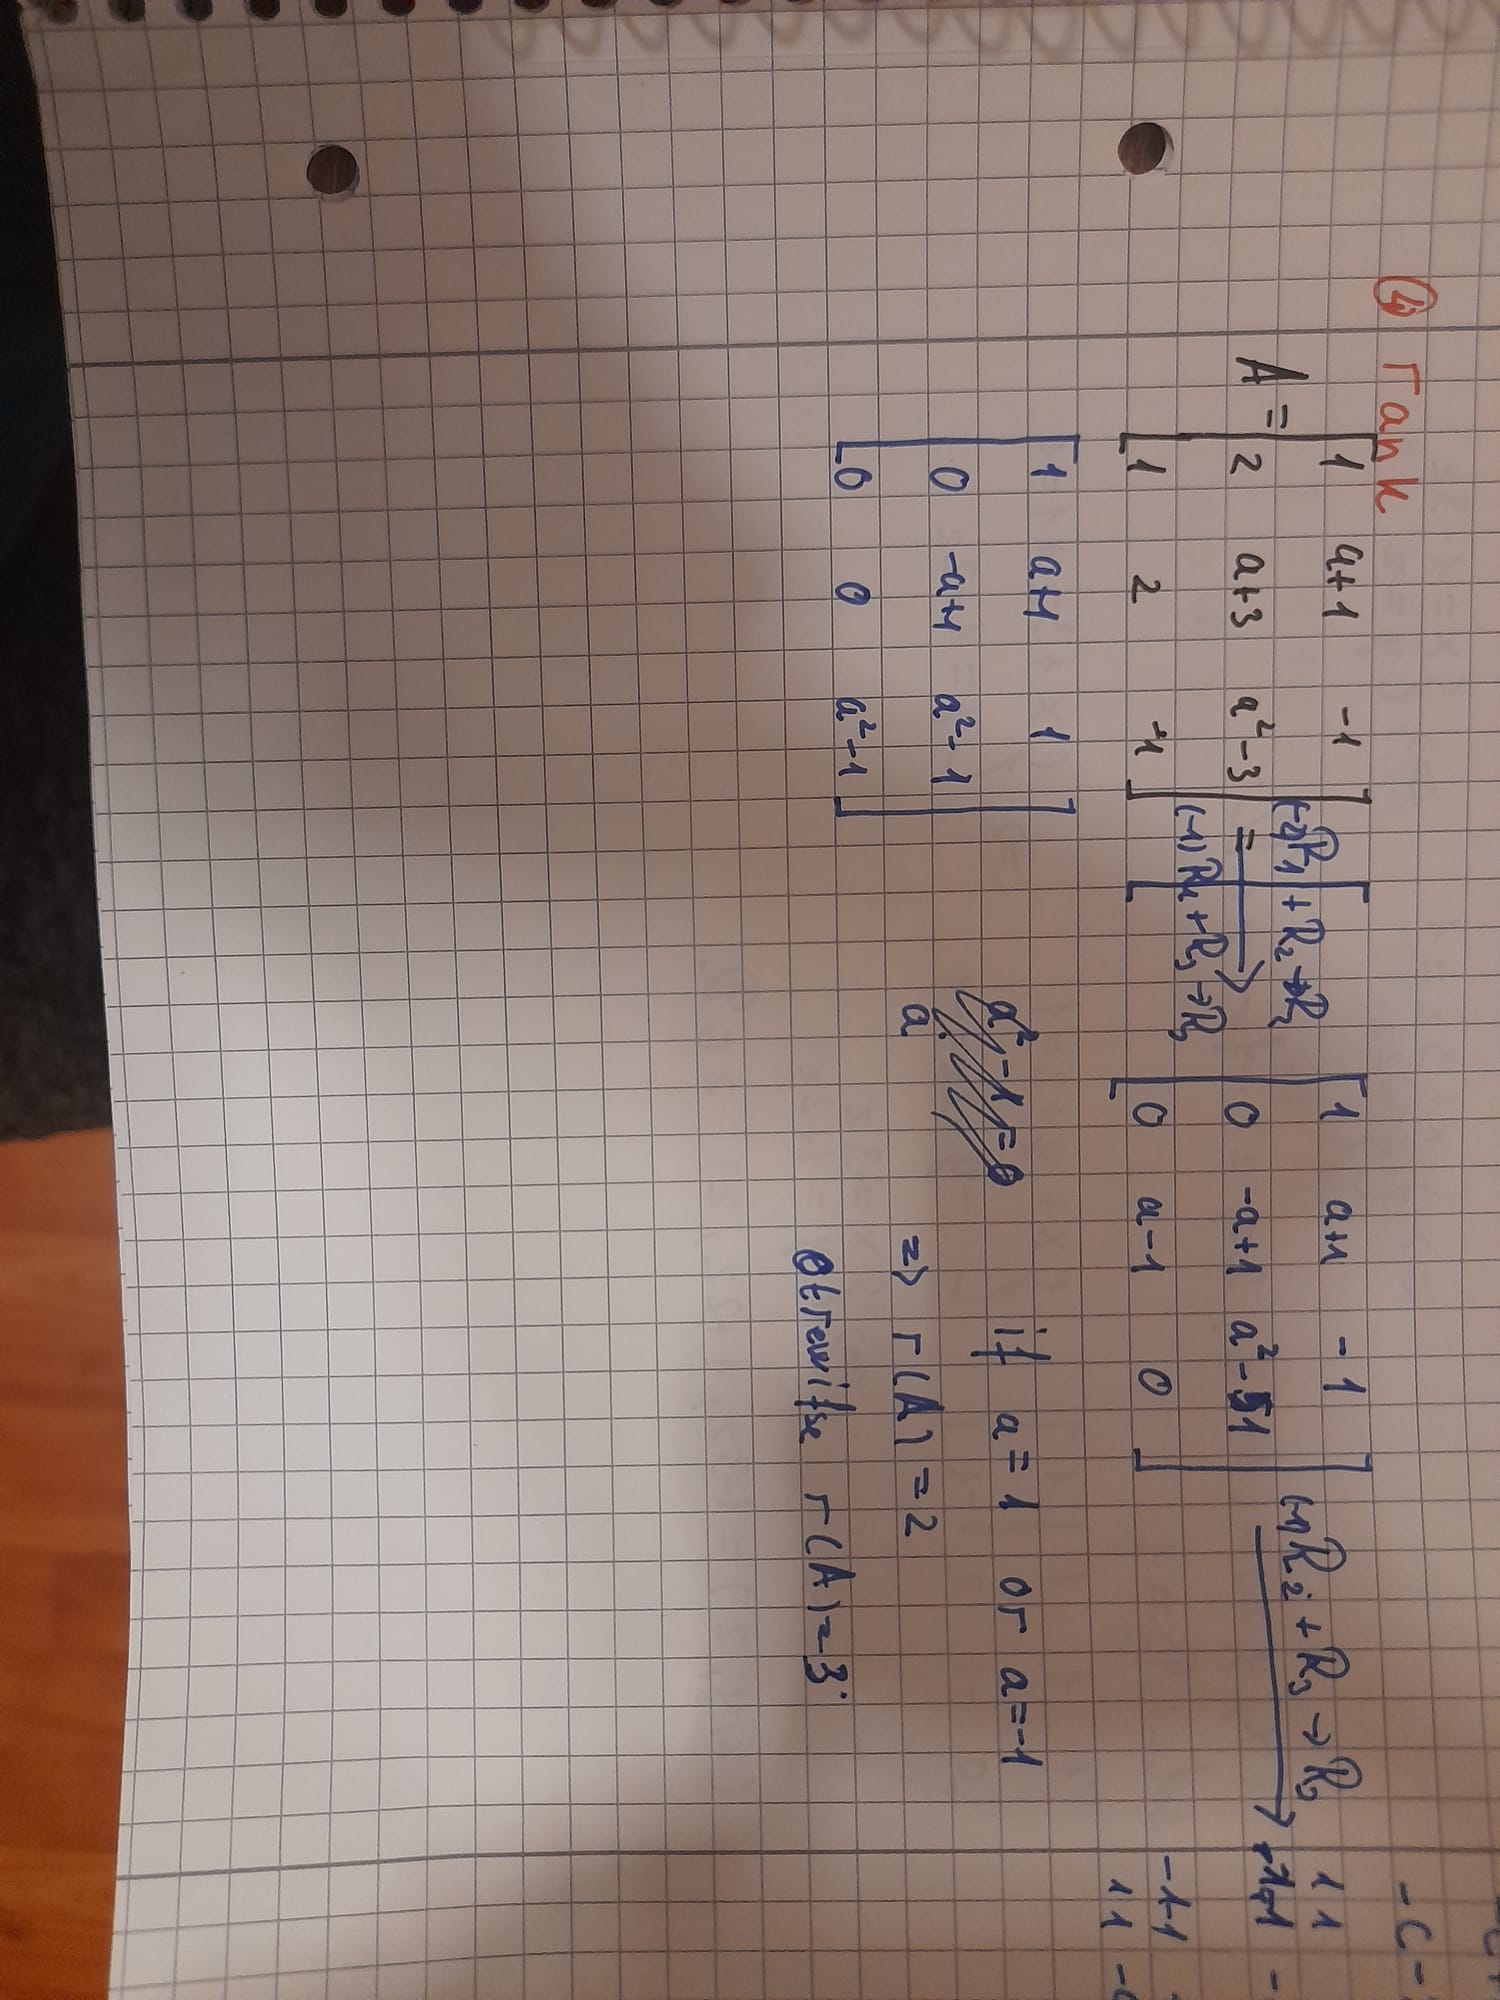 4 rank
A = [ 1 a+1 -1 ; 2 a+3 a²-3 ; 1 2 -1 ] = (-2)R₁ + R₂ → R₂ (-1)R₁ + R₃ → R₃ [ 1 a+1 -1 ; 0 -a+1 a²-1 ; 0 a-1 0 ] (-1)R₂ + R₃ → R₃
[ 1 a+1 1 ; 0 -a+1 a²-1 ; 0 0 a²-1 ]
a² - 1 = 0 if a = 1 or a = -1
a => r(A) = 2
otrewifse r(A) = 3
-C-
11
-1-1
11